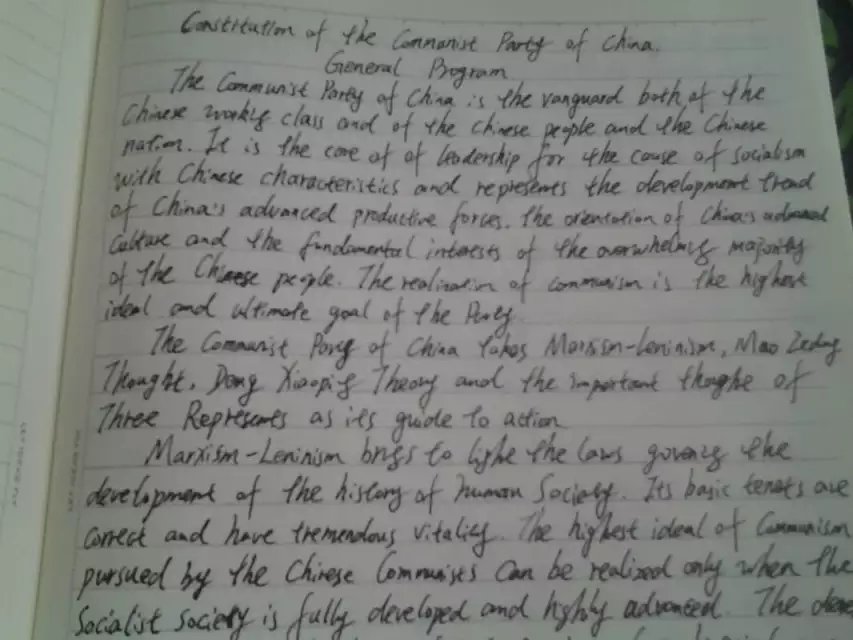 Constitution of the Communist Party of China.
General Program
The Communist Party of China is the vanguard both of the
Chinese workig class and of the Chinese people and the Chinese
nation. It is the core of of leadership for the cause of socialism
with Chinese characteristics and represents the development trend
of China's advanced productive forces. the orientation of China's advanced
culture and the fundamental interests of the overwhelmig majority
of the Chinese people. The realization of communism is the highest
ideal and ultimate goal of the Party.
The Communist Party of China takes Marxism-Leninism, Mao Zedong
Thought, Deng Xiaoping Theory and the important thoght of
Three Represents as its guide to action
Marxism-Leninism brigs to light the laws governig the
development of the history of human Society. Its basic tenets are
correct and have tremendous vitality. The highest ideal of Communism
pursued by the Chinese Communists can be realized only when the
Socialist Society is fully developed and highly advanced. The